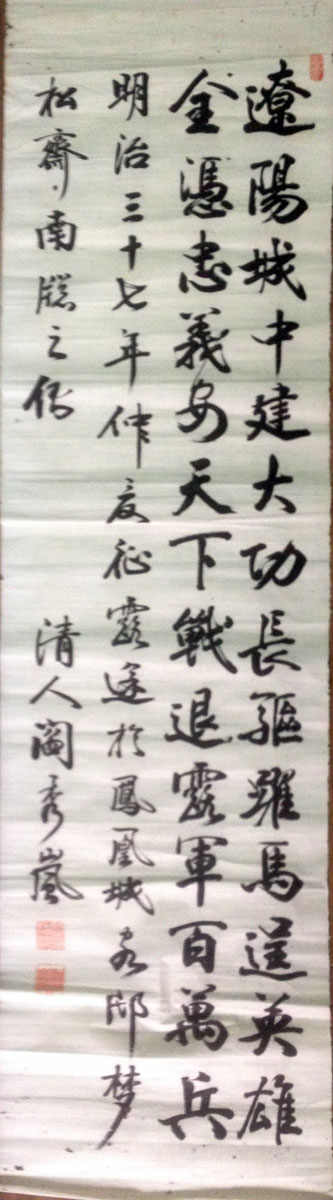 遼陽城中建大功長驅躍馬逞英雄
全憑忠義安天下戰退露軍百萬兵
明治三十七年仲夏征露途於鳳凰城客邸梦
松齋南牕之側
清人閻秀嵐